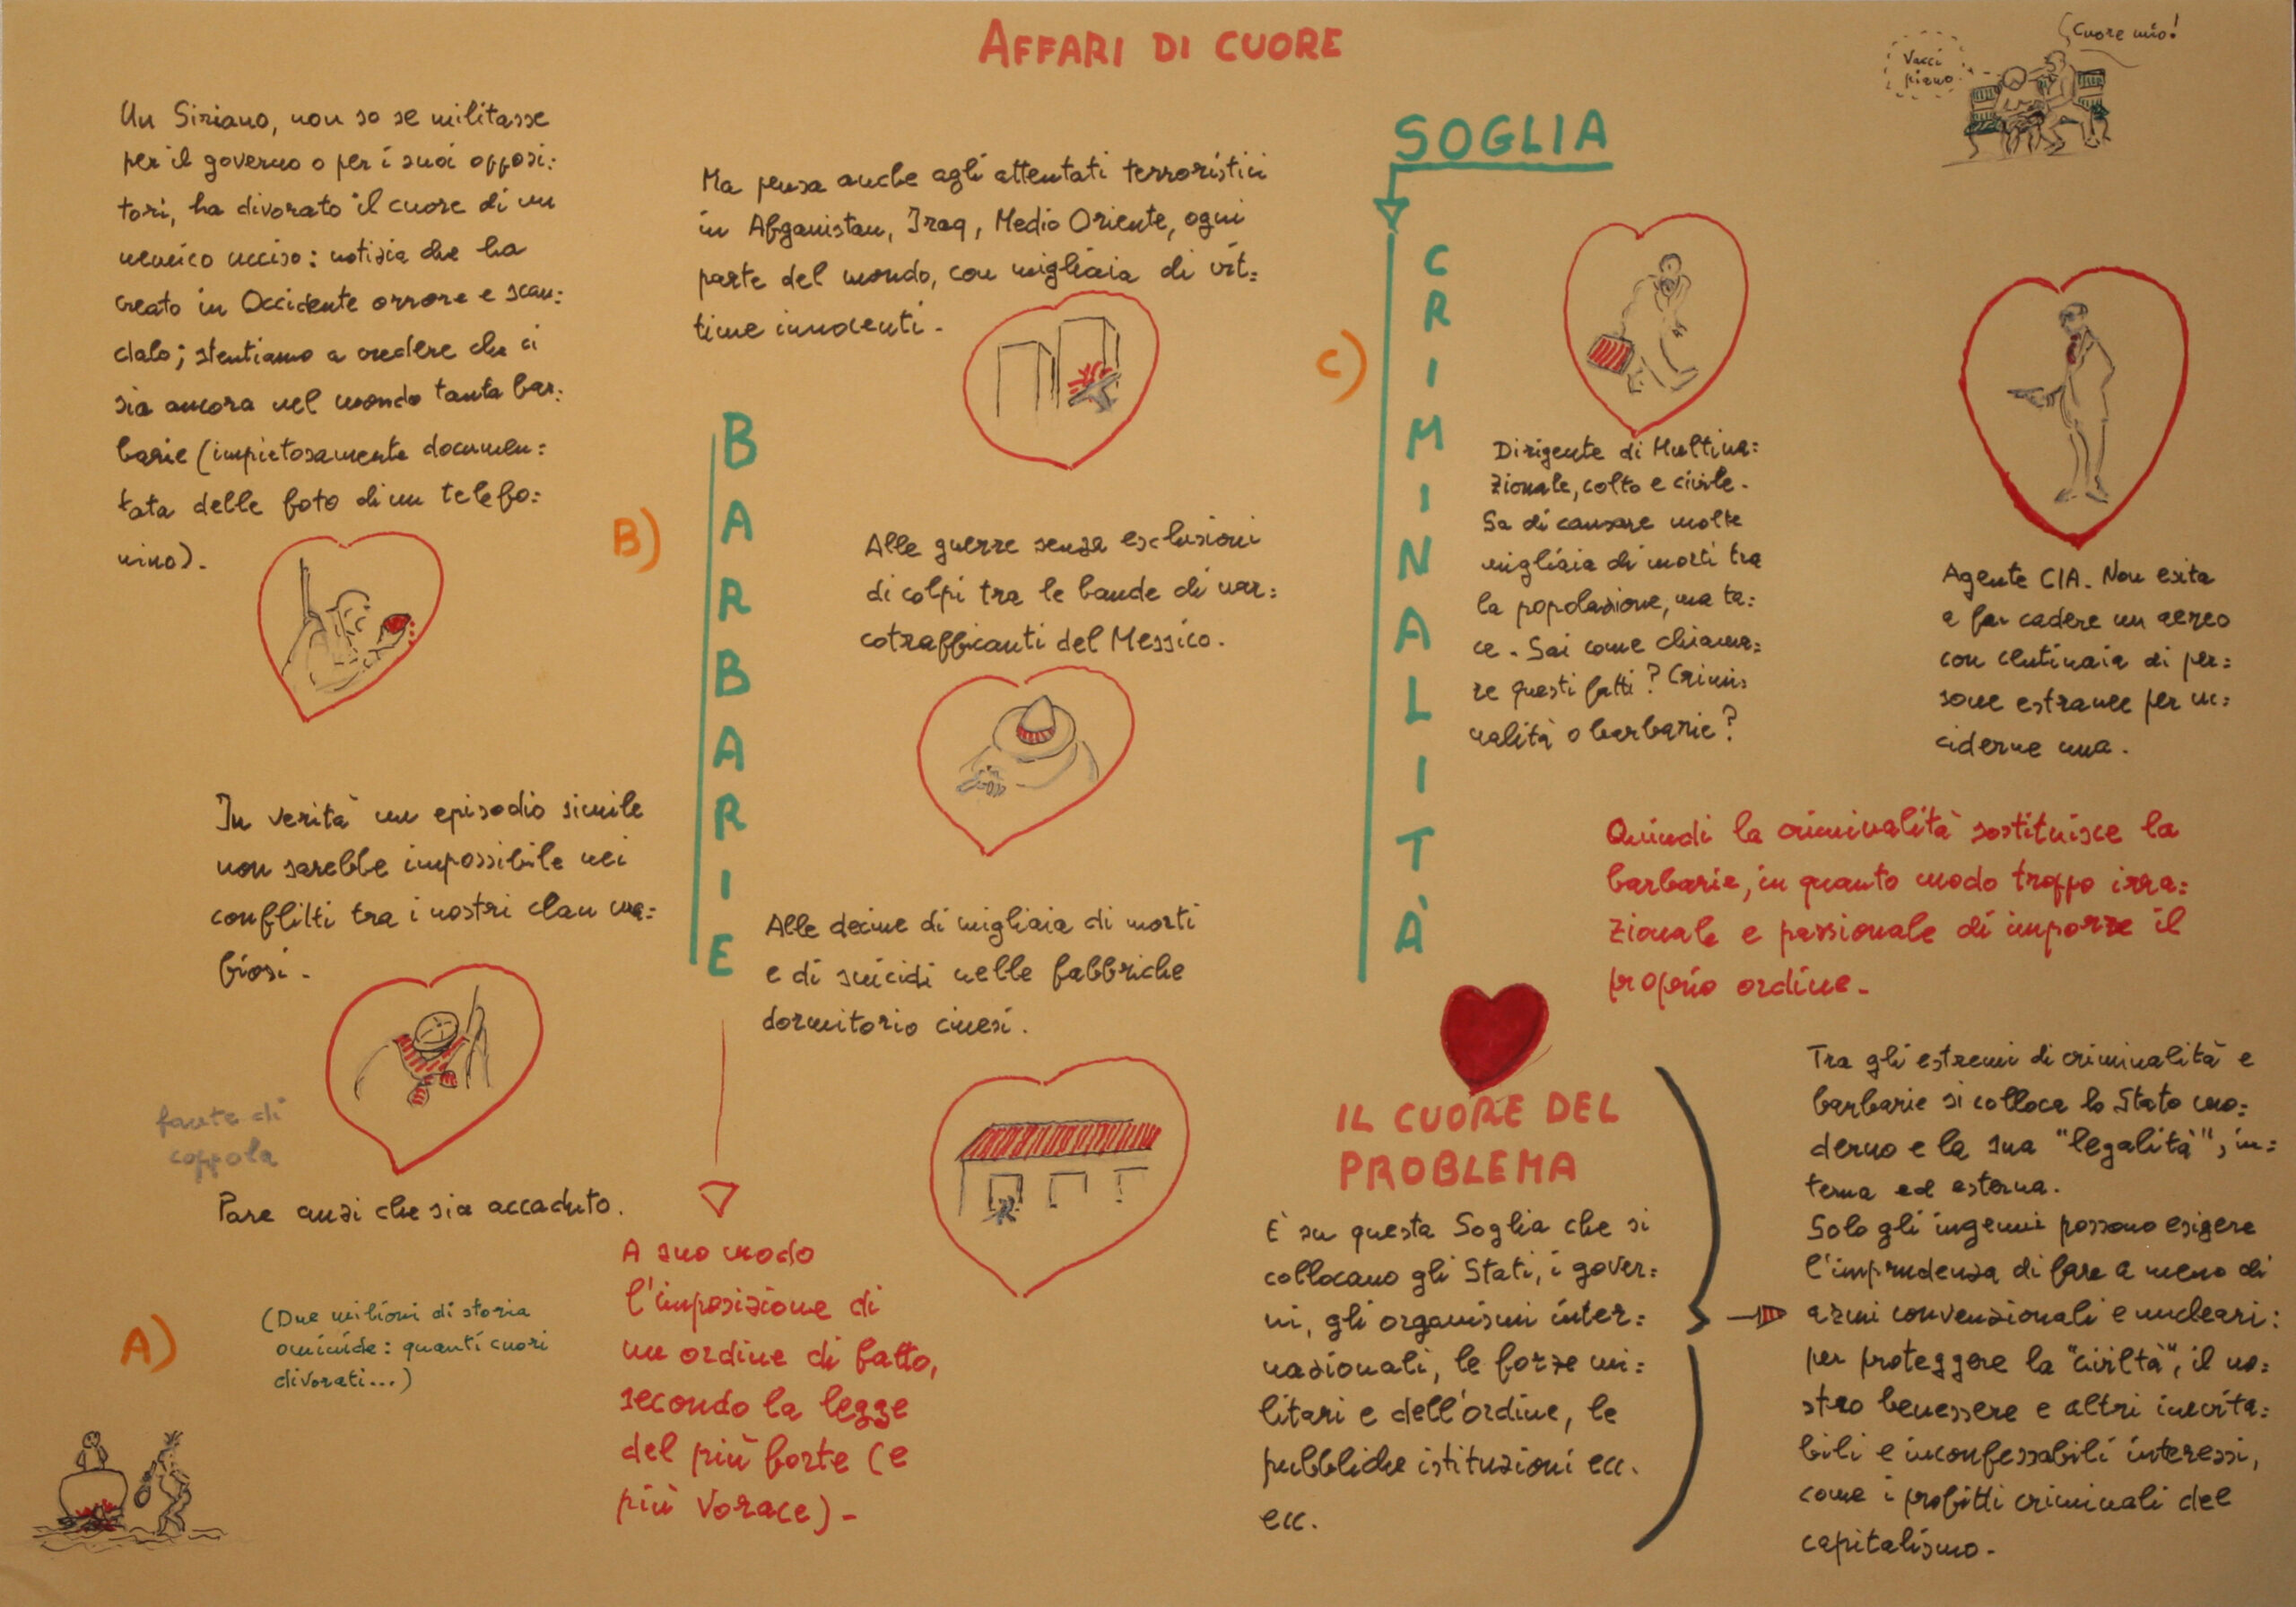 AFFARI DI CUORE
Vacci
piano
Cuore mio!
Un Siriano, non so se militasse
per il governo o per i suoi opposi=
tori, ha divorato il cuore di un
nemico ucciso: notizia che ha
creato in Occidente orrore e scan=
dalo; stentiamo a credere che ci
sia ancora nel mondo tanta bar=
barie (impietosamente documen=
tata delle foto di un telefo=
nino).
In verità un episodio simile
non sarebbe impossibile nei
conflitti tra i nostri clan ma=
fiosi.
fante di
coppola
Pare anzi che sia accaduto.
A)
(Due milioni di storia
omicide: quanti cuori
divorati...)
B)
BARBARIE
Ma pensa anche agli attentati terroristici
in Afganistan, Iraq, Medio Oriente, ogni
parte del mondo, con migliaia di vit=
time innocenti.
Alle guerre senza esclusioni
di colpi tra le bande di nar=
cotrafficanti del Messico.
Alle decine di migliaia di morti
e di suicidi nelle fabbriche
dormitorio cinesi.
A suo modo
l'imposizione di
un ordine di fatto,
secondo la legge
del più forte (e
più vorace)-
SOGLIA
C)
CRIMINALITÀ
Dirigente di Multina=
zionale, colto e civile.
Sa di causare molte
migliaia di morti tra
la popolazione, ma ta=
ce. Sai come chiama=
re questi fatti? Crimi=
nalità o barbarie?
Agente CIA. Non esita
a far cadere un aereo
con centinaia di per=
sone estranee per uc=
ciderne una.
Quindi la criminalità sostituisce la
barbarie, in quanto modo troppo irra=
zionale e passionale di imporre il
proprio ordine.
IL CUORE DEL
PROBLEMA
È su questa Soglia che si
collocano gli Stati, i gover=
ni, gli organismi inter=
nazionali, le forze mi=
litari e dell'ordine, le
pubbliche istituzioni ecc.
ecc.
Tra gli estremi di criminalità e
barbarie si colloca lo Stato mo=
derno e la sua "legalità", in=
terna ed esterna.
Solo gli ingenui possono esigere
l'imprudenza di fare a meno di
armi convenzionali e nucleari:
per proteggere la "civiltà", il no=
stro benessere e altri inevita=
bili e inconfessabili interessi,
come i profitti criminali del
capitalismo.